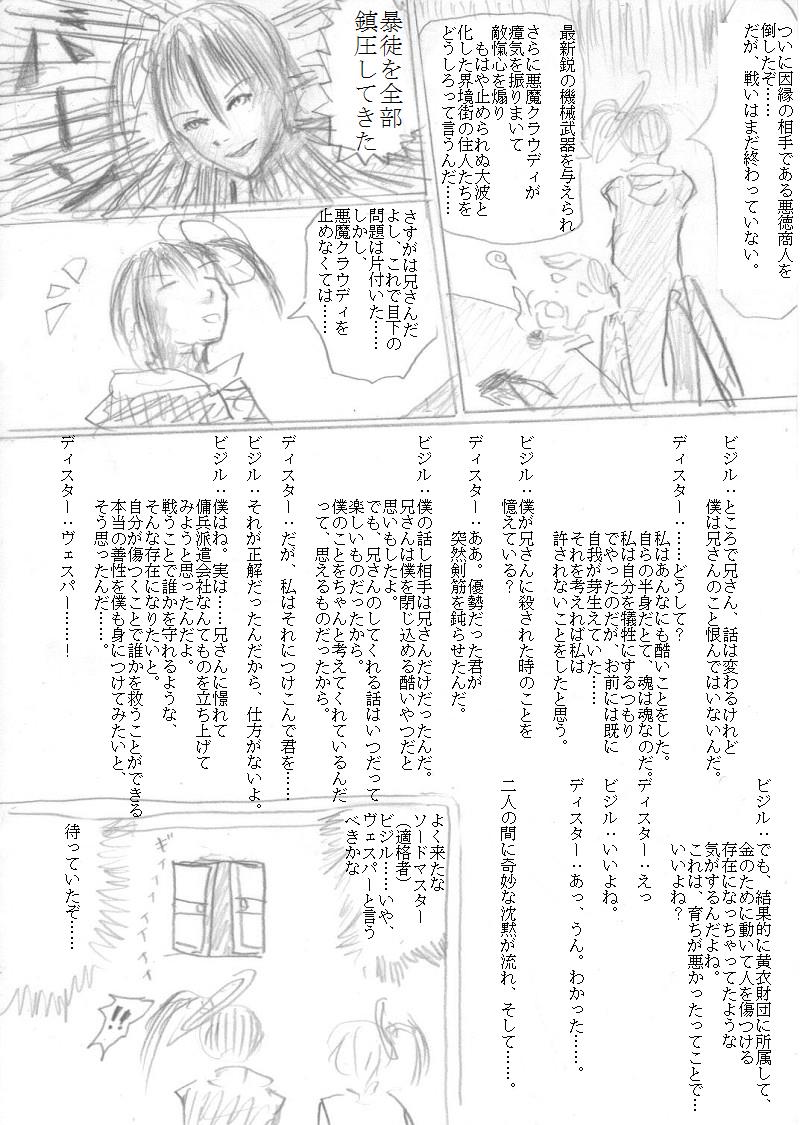 ついに因縁の相手である悪徳商人を
倒したぞ……
だが、戦いはまだ終わっていない。
最新鋭の機械武器を与えられ
さらに悪魔クラウディが
瘴気を振りまいて
敵愾心を煽り
もはや止められぬ大波と
化した界境街の住人たちを
どうしろって言うんだ……
暴徒を全部
鎮圧してきた
バーン
さすがは兄さんだ
よし、これで目下の
問題は片付いた……
しかし、
悪魔クラウディを
止めなくては……
ビジル：ところで兄さん、話は変わるけれど
僕は兄さんのこと恨んではいないんだ。
ディスター：……どうして？
私はあんなにも酷いことをした。
自らの半身だとて、魂は魂なのだ。
私は自分を犠牲にするつもり
でやったのだが、お前には既に
自我が芽生えていた……
それを考えれば私は
許されないことをしたと思う。
ビジル：僕が兄さんに殺された時のことを
憶えている？
ディスター：ああ。優勢だった君が
突然剣筋を鈍らせたんだ。
ビジル：僕の話し相手は兄さんだけだったんだ。
兄さんは僕を閉じ込める酷いやつだと
思いもしたよ。
でも、兄さんのしてくれる話はいつだって
楽しいものだったから。
僕のことをちゃんと考えてくれているんだ
って、思えるものだったから。
ディスター：だが、私はそれにつけこんで君を……
ビジル：それが正解だったんだから、仕方がないよ。
ビジル：僕はね。実は……兄さんに憧れて
傭兵派遣会社なんてものを立ち上げて
みようと思ったんだよ。
戦うことで誰かを守れるような、
そんな存在になりたいと。
自分が傷つくことで誰かを救うことができる
本当の善性を僕も身につけてみたいと、
そう思ったんだ……。
ディスター：ヴェスパー……！
ビジル：でも、結果的に黄衣財団に所属して、
金のために動いて人を傷つける
存在になっちゃってたような
気がするんだよね。
これは、育ちが悪かったってことで…
いいよね？
ディスター：えっ
ビジル：いいよね。
ディスター：あっ、うん。わかった……。
二人の間に奇妙な沈黙が流れ、そして……。
よく来たな
ソードマスター
（適格者）
ビジル……いや、
ヴェスパーと言う
べきかな
ギィィィィィィ
待っていたぞ……
!!